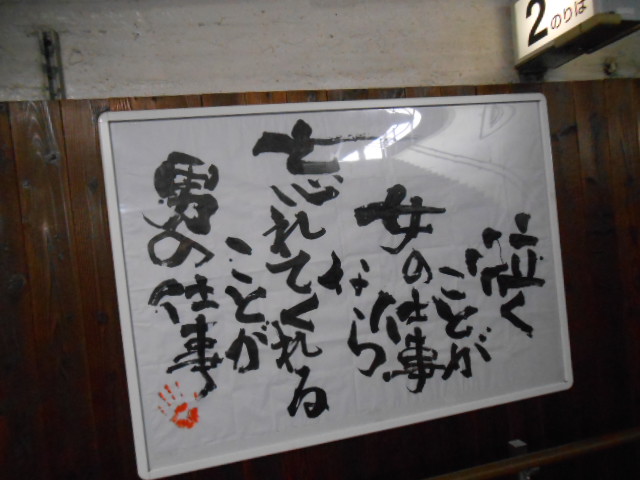 2のりば
泣く
ことが
女の仕事
なら
忘れてくれる
ことが
男の仕事